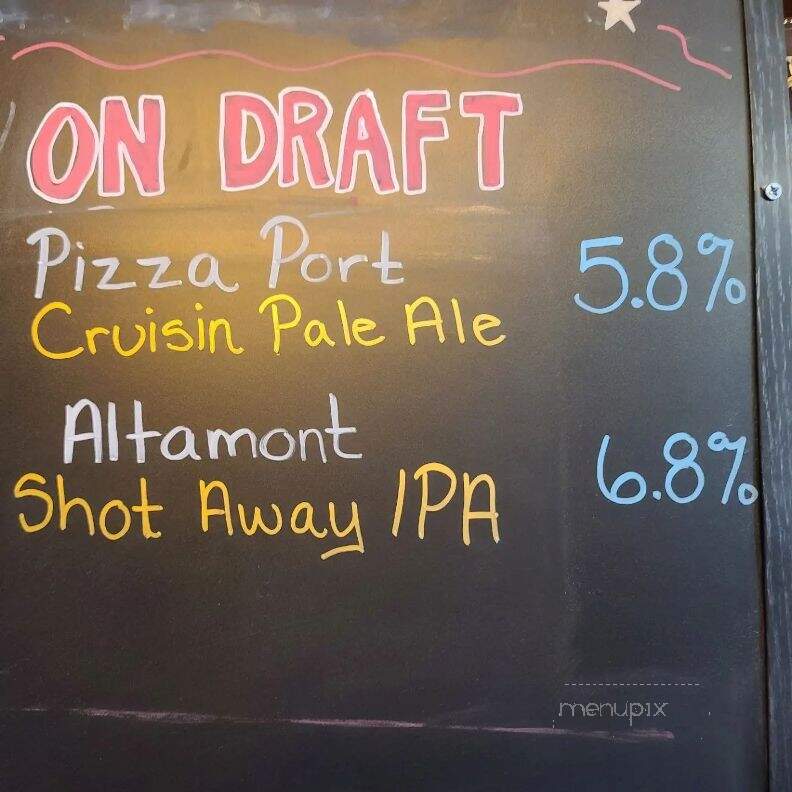 ON DRAFT
Pizza Port 5.8%
Cruisin Pale Ale
Altamont 6.8%
Shot Away IPA
menupix